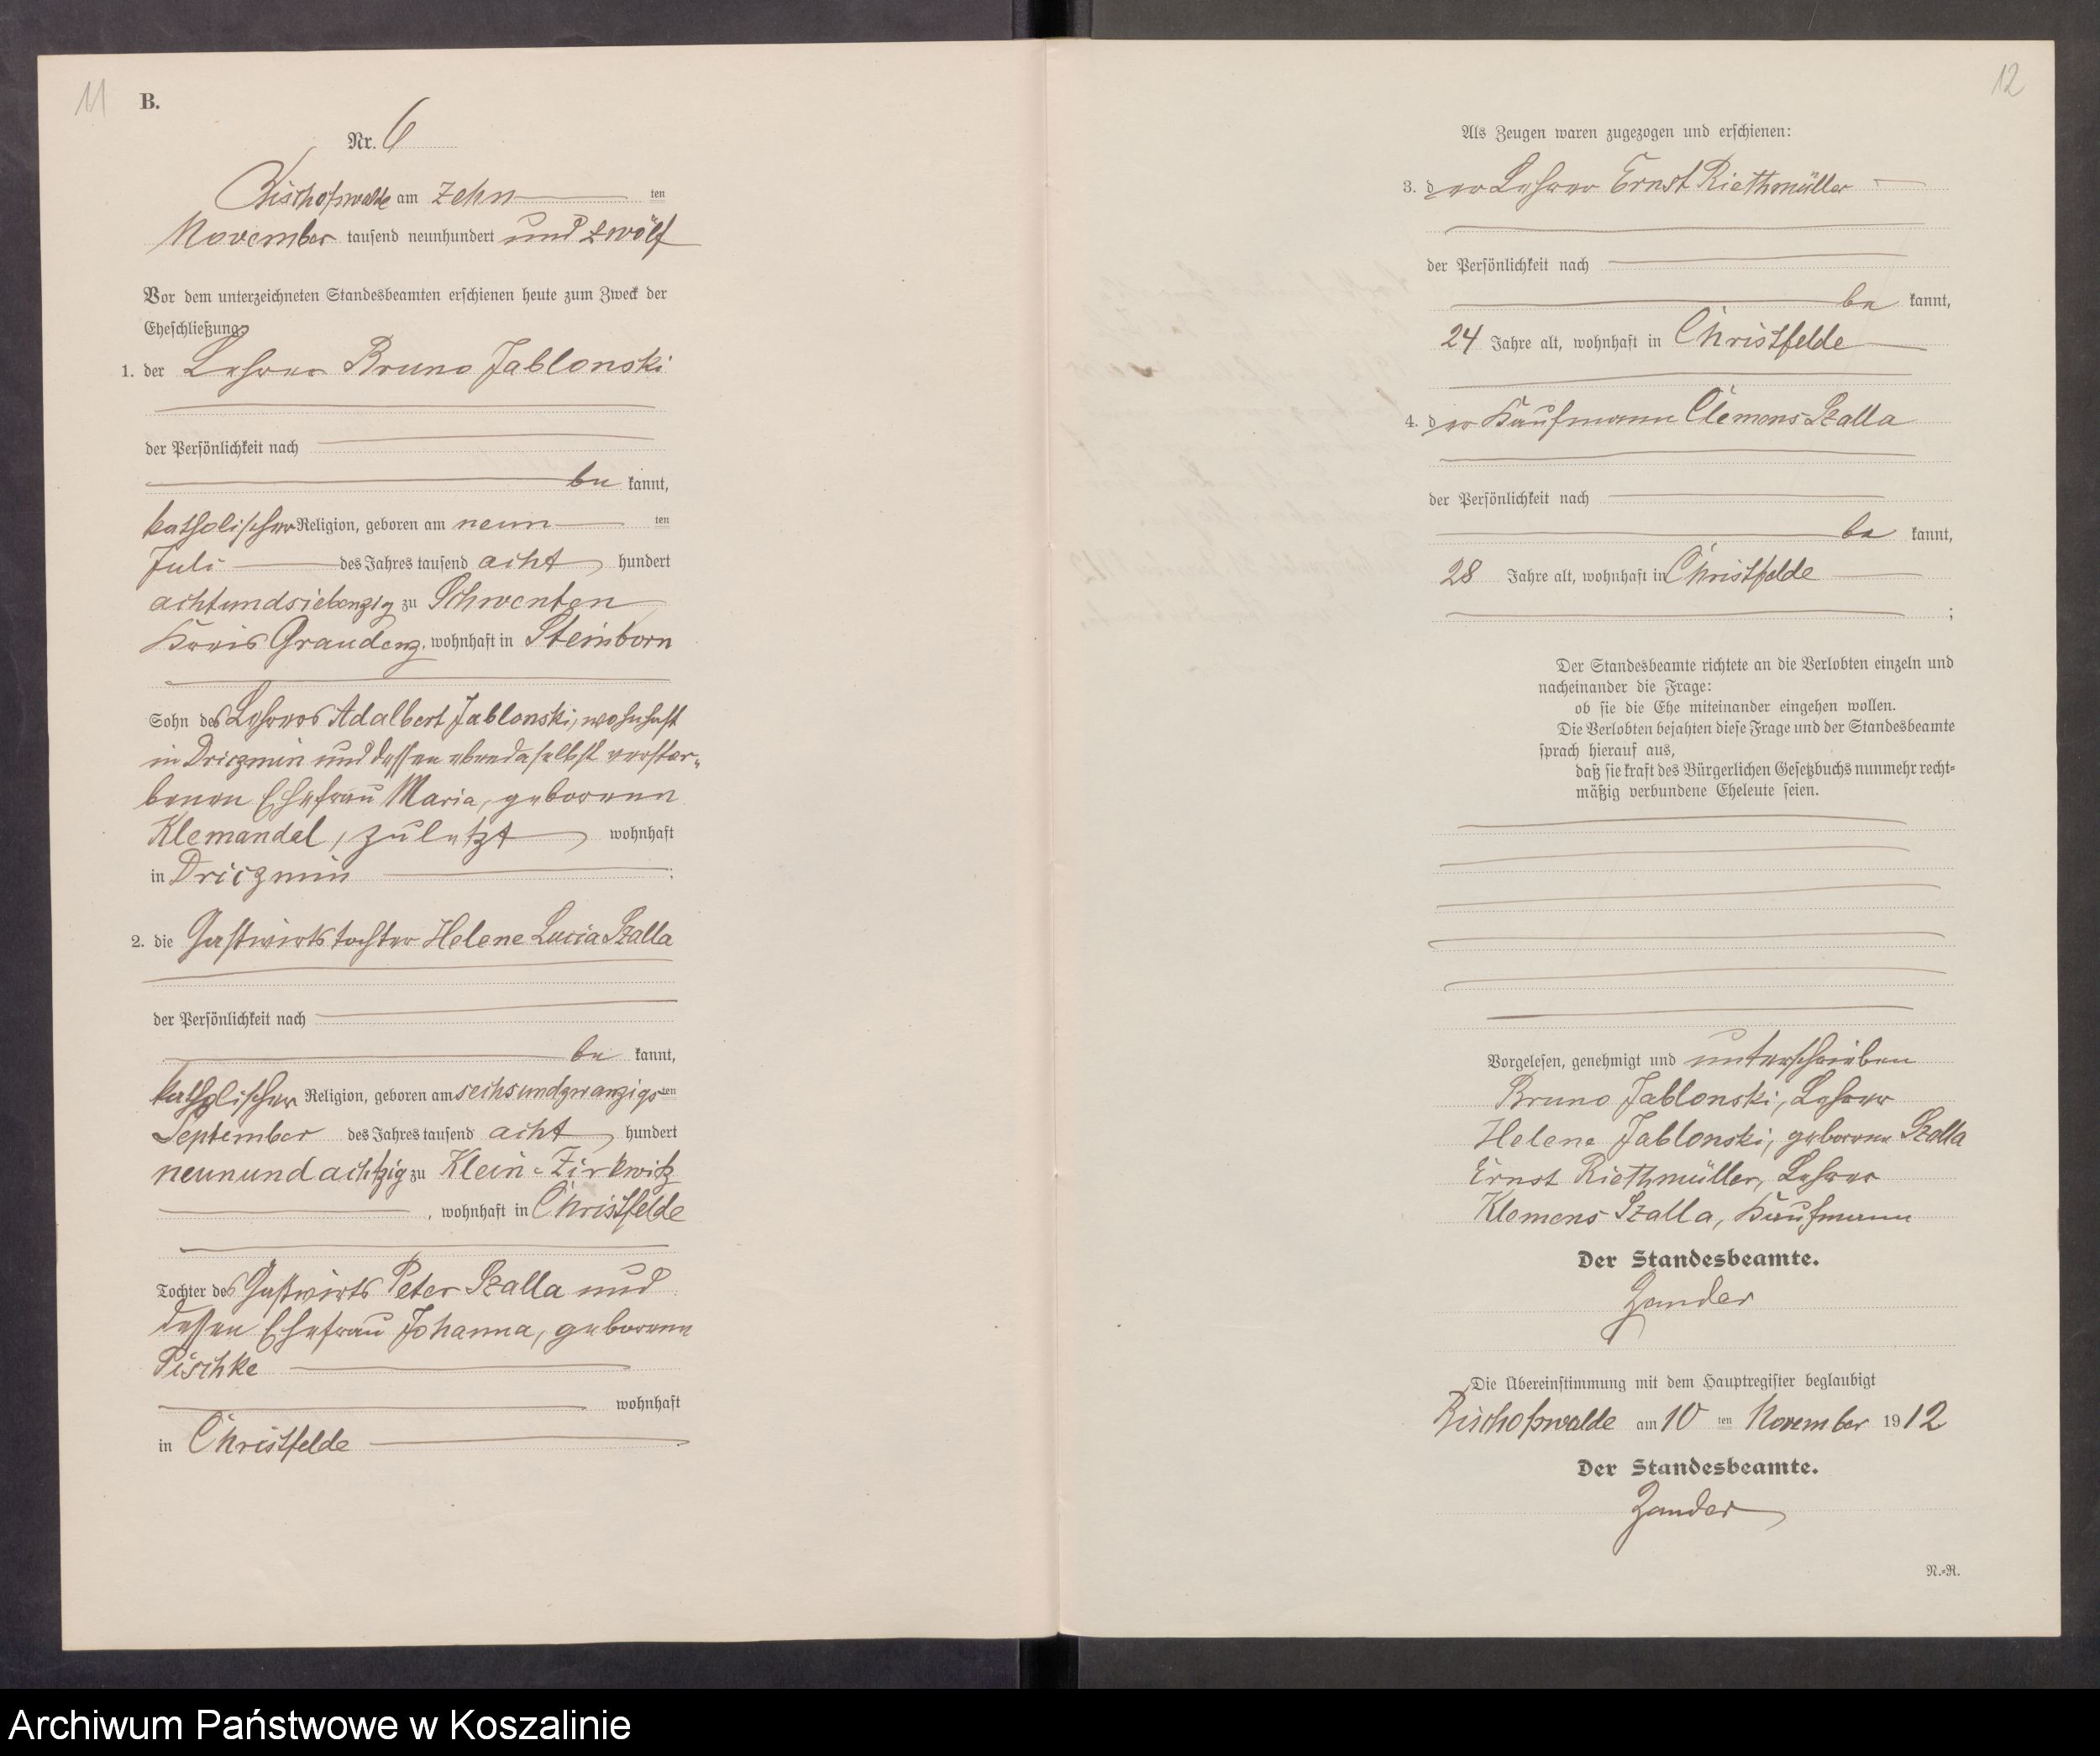 11
B.
Nr. 6
Bischofswalde am zehn ten
November tausend neunhundert und zwölf
Vor dem unterzeichneten Standesbeamten erschienen heute zum Zweck der
Eheschließung:
1. der Lehrer Bruno Jablonski
der Persönlichkeit nach
be kannt,
katholischer Religion, geboren am neun ten
Juli des Jahres tausend acht hundert
achtundsiebenzig zu Schwenten
Kreis Graudenz, wohnhaft in Steinborn
Sohn des Lehrers Adalbert Jablonski, wohnhaft
in Driczmin und dessen ebendaselbst verstor-
benen Ehefrau Maria, geborenen
Klemandel, zuletzt wohnhaft
in Driczmin ;
2. die Gastwirtstochter Helene Lucia Szalla
der Persönlichkeit nach
be kannt,
katholischer Religion, geboren am sechsundzwanzigs ten
September des Jahres tausend acht hundert
neunundachtzig zu Klein-Zirkwitz
, wohnhaft in Christfelde
Tochter des Gastwirts Peter Szalla und
dessen Ehefrau Johanna, geborene
Pischke
wohnhaft
in Christfelde
12
Als Zeugen waren zugezogen und erschienen:
3. der Lehrer Ernst Riethmüller
der Persönlichkeit nach
be kannt,
24 Jahre alt, wohnhaft in Christfelde
4. der Kaufmann Clemens Szalla
der Persönlichkeit nach
be kannt,
28 Jahre alt, wohnhaft in Christfelde
;
Der Standesbeamte richtete an die Verlobten einzeln und
nacheinander die Frage:
ob sie die Ehe miteinander eingehen wollen.
Die Verlobten bejahten diese Frage und der Standesbeamte
sprach hierauf aus,
daß sie kraft des Bürgerlichen Gesetzbuchs nunmehr recht-
mäßig verbundene Eheleute seien.
Vorgelesen, genehmigt und unterschrieben
Bruno Jablonski, Lehrer
Helene Jablonski, geborene Szalla
Ernst Riethmüller, Lehrer
Klemens Szalla, Kaufmann
Der Standesbeamte.
Zander
Die Übereinstimmung mit dem Hauptregister beglaubigt
Bischofswalde am 10 ten November 1912
Der Standesbeamte.
Zander
N.-R.
Archiwum Państwowe w Koszalinie